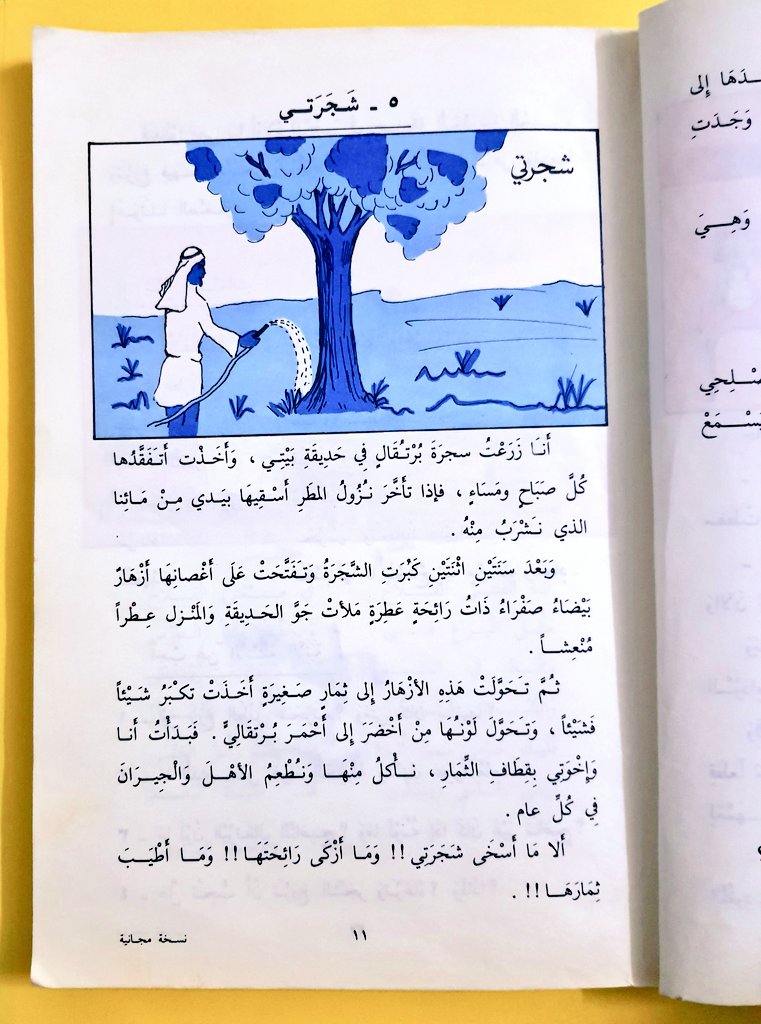 ٥ - شَجَرَتي
شجرتي
أَنَا زَرَعْتُ سجرَةَ بُرْتُقَالٍ فِي حَدِيقَةِ بَيْتِي ، وَأَخَذْت أَتَفَقَّدُها
كُلَّ صَبَاحٍ ومَسَاءٍ ، فإذا تَأَخَّرَ نُزُولُ المطَرِ أَسْقِيهَا بيَدي مِنْ مَائِنا
الذي نَشْرَبُ مِنْهُ .
وَبَعْدَ سَنَتَيْنِ اثْنَتَيْنِ كَبُرَتِ الشَّجَرَةُ وَتَفَتَّحَتْ عَلَى أَغْصانِهَا أَزْهَارٌ
بَيْضَاءُ صَفْرَاءُ ذَاتُ رَائِحَةٍ عَطِرَةٍ مَلأَتْ جَوَّ الحَدِيقَةِ وَالمَنْزل عِطْراً
مُنْعِشاً .
ثُمَّ تَحَوَّلَتْ هَذِهِ الأزْهَارُ إِلى ثِمَارٍ صَغِيرَةٍ أَخَذَتْ تكبَرُ شَيْئاً
فَشَيْئاً ، وَتَحَوَّلَ لَوْنُهَا مِنْ أَخْضَرَ إِلى أَحْمَرَ بُرْتقَالِيٍّ . فَبَدَأْتُ أَنا
وَإِخْوَتِي بِقِطَافِ الثِّمَارِ ، نأْكلُ مِنْهَا وَنُطْعِمُ الأهْلَ وَالْجِيرَانَ
فِي كُلِّ عام .
أَلا مَا أَسْخى شَجَرَتِي !! وَمَا أَزْكَى رَائِحَتَهَا !! وَمَا أَطْيَبَ
ثِمَارَهَا !! .
١١
نسخة مجانية
إِلى
وَجَدَتِ
وَهِيَ